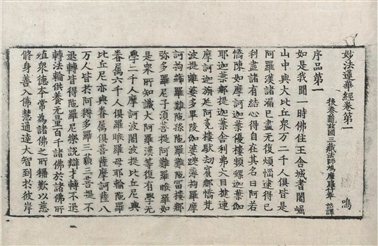 妙法蓮華經卷第一 鳴
後秦龜茲國三藏法師鳩摩羅什奉 詔譯
序品第一
如是我聞一時佛住王舍城耆闍崛
山中與大比丘衆万二千人俱皆是
阿羅漢諸漏已盡无復煩惱逮得己
利盡諸有結心得自在其名曰阿若
憍陳如摩訶迦葉優樓頻螺迦葉伽
耶迦葉那提迦葉舍利弗大目揵連
摩訶迦旃延阿㝹樓馱劫賓那憍梵
波提離婆多畢陵伽婆蹉薄拘羅摩
訶拘絺羅難陁孫陁羅難陁富樓那
彌多羅尼子須菩提阿難羅睺羅如
是衆所知識大阿羅漢等復有學无
學二千人摩訶波闍波提比丘尼與
眷屬六千人俱羅睺羅母耶輸陁羅
比丘尼亦與眷屬俱菩薩摩訶薩八
万人皆於阿耨多羅三藐三菩提不
退轉皆得陁羅尼樂說辯才轉不退
轉法輪供養无量百千諸佛於諸佛所
殖衆德本常爲諸佛之所稱歎以慈
脩身善入佛慧通達大智到於彼岸